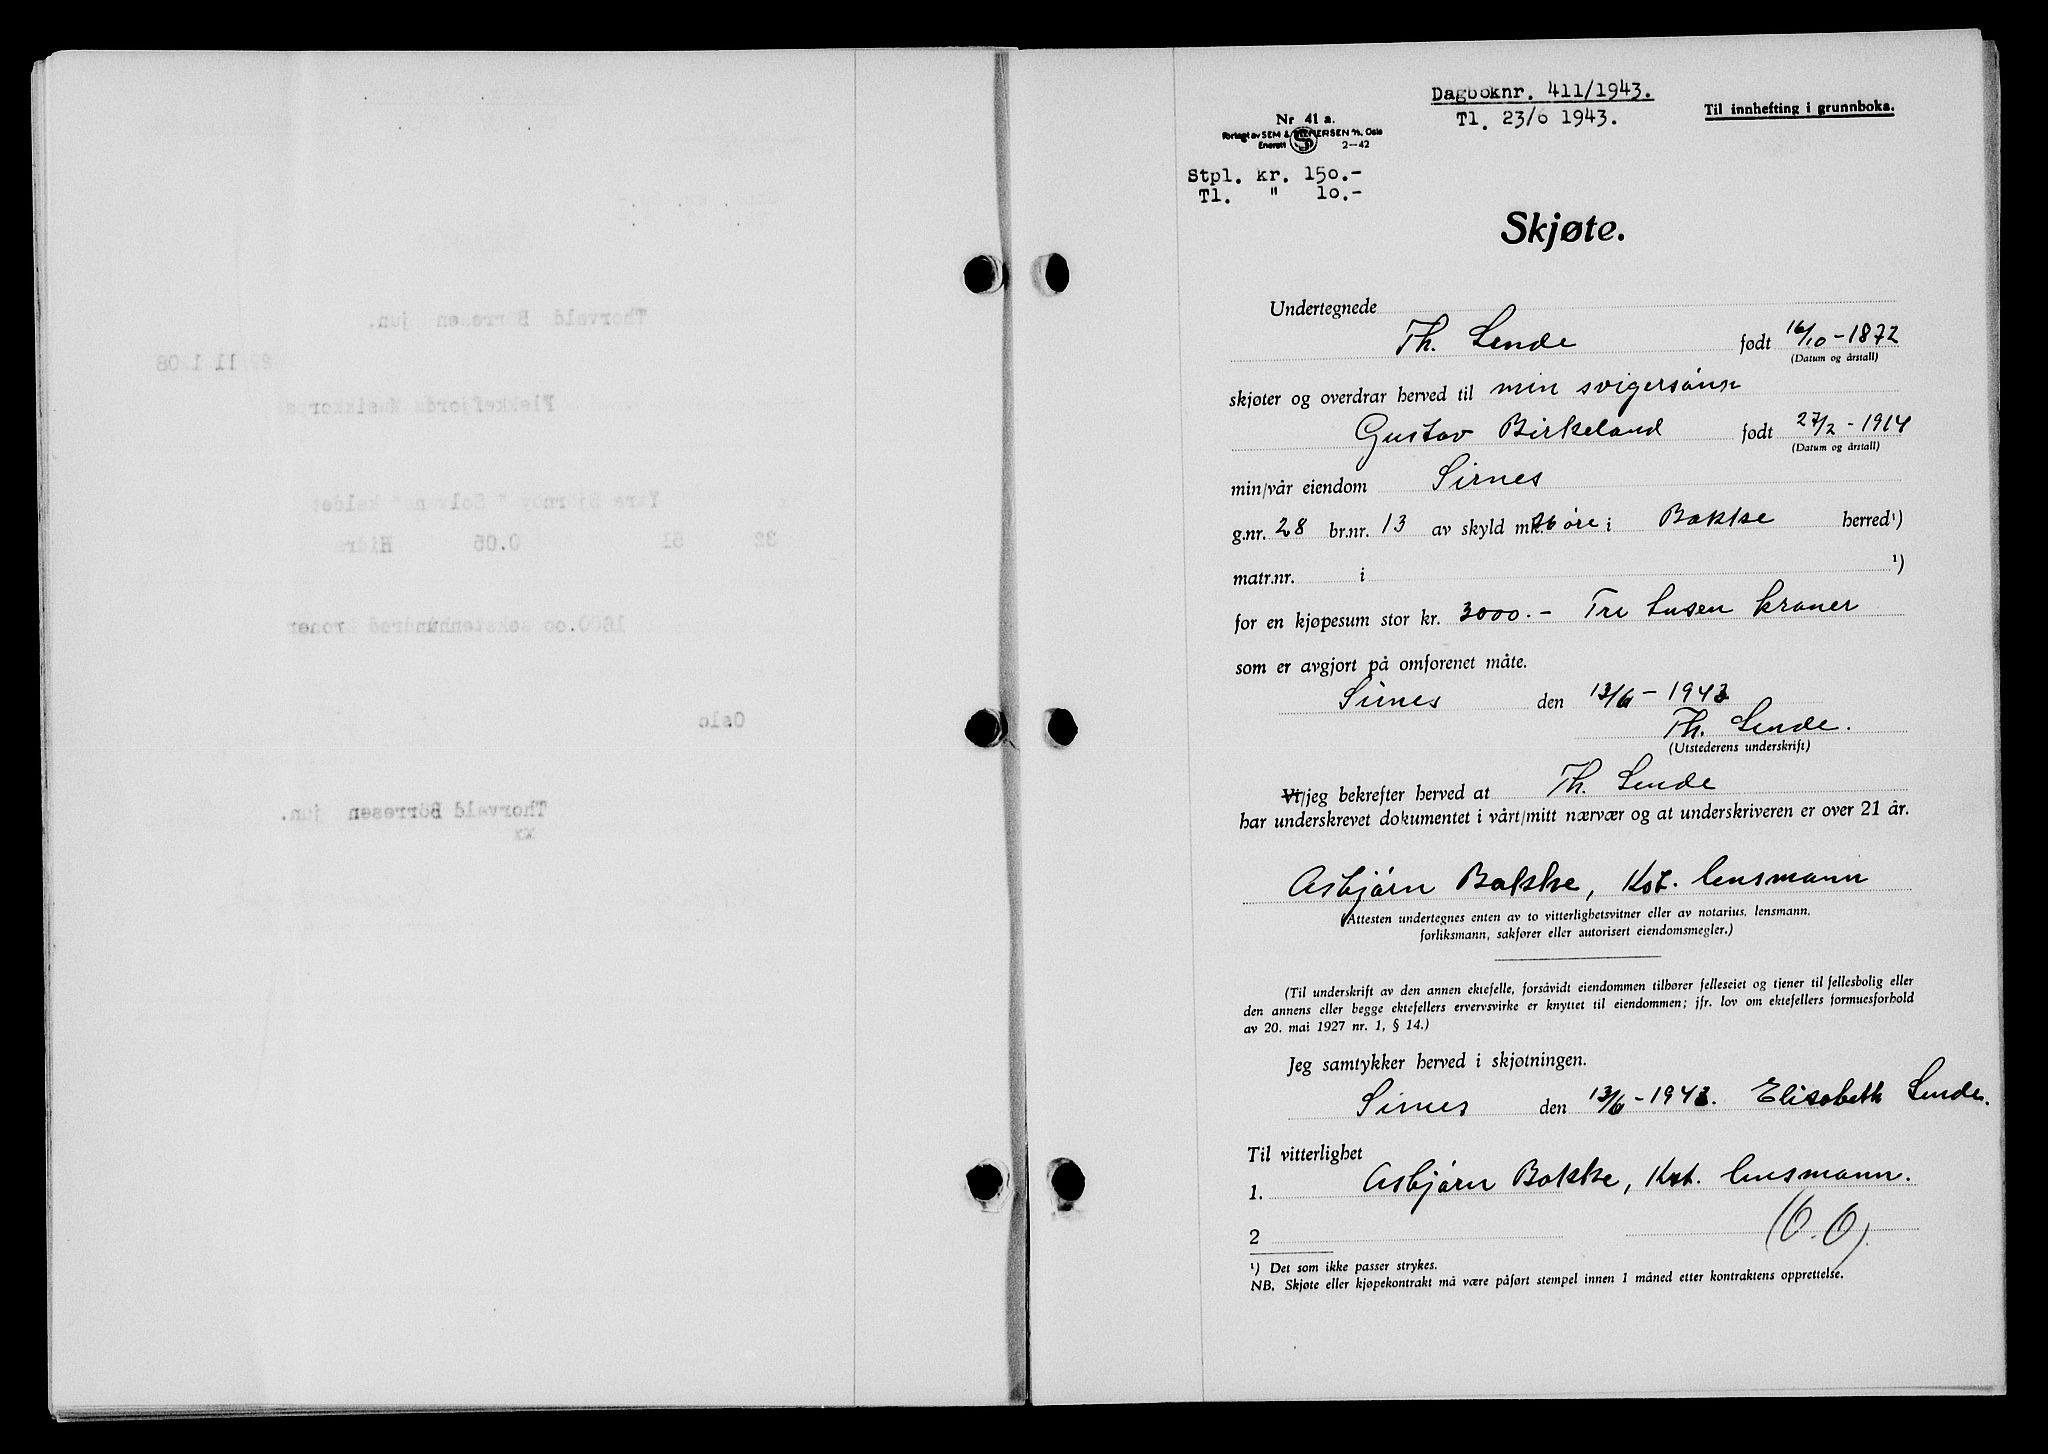 Dagboknr. 411/1943.
Tl. 23/6 1943.
Til innhefting i grunnboka.
Nr 41 a.
Forlagt av SEM & STENERSEN A/S, Oslo
Enerett 2—42
Stpl. kr. 150.-
Tl. " 10.-
Skjøte.
Undertegnede
Th. Sende født 16/10-1872
(Datum og årstall)
skjøter og overdrar herved til min svigersønn
Gustav Birkeland født 27/2-1914
(Datum og årstall)
min/vår eiendom Sirnes
g.nr. 28 br.nr. 13 av skyld mk. øre i Bakke herred¹)
matr.nr. i ¹)
for en kjøpesum stor kr. 3000.- Tre tusen kroner
som er avgjort på omforenet måte.
Sirnes den 13/6-1943
Th. Sende.
(Utstederens underskrift)
Vi/jeg bekrefter herved at Th. Sende
har underskrevet dokumentet i vårt/mitt nærvær og at underskriveren er over 21 år.
Asbjørn Bakke, Kst. lensmann
(Attesten undertegnes enten av to vitterlighetsvitner eller av notarius, lensmann,
forliksmann, sakfører eller autorisert eiendomsmegler.)
(Til underskrift av den annen ektefelle, forsåvidt eiendommen tilhører felleseiet og tjener til fellesbolig eller
den annens eller begge ektefellers ervervsvirke er knyttet til eiendommen; jfr. lov om ektefellers formuesforhold
av 20. mai 1927 nr. 1, § 14.)
Jeg samtykker herved i skjøtningen.
Sirnes den 13/6-1943. Elisabeth Sende.
Til vitterlighet
1. Asbjørn Bakke, Kst. lensmann.
2 (O.O).
¹) Det som ikke passer strykes.
NB. Skjøte eller kjøpekontrakt må være påført stempel innen 1 måned etter kontraktens opprettelse.